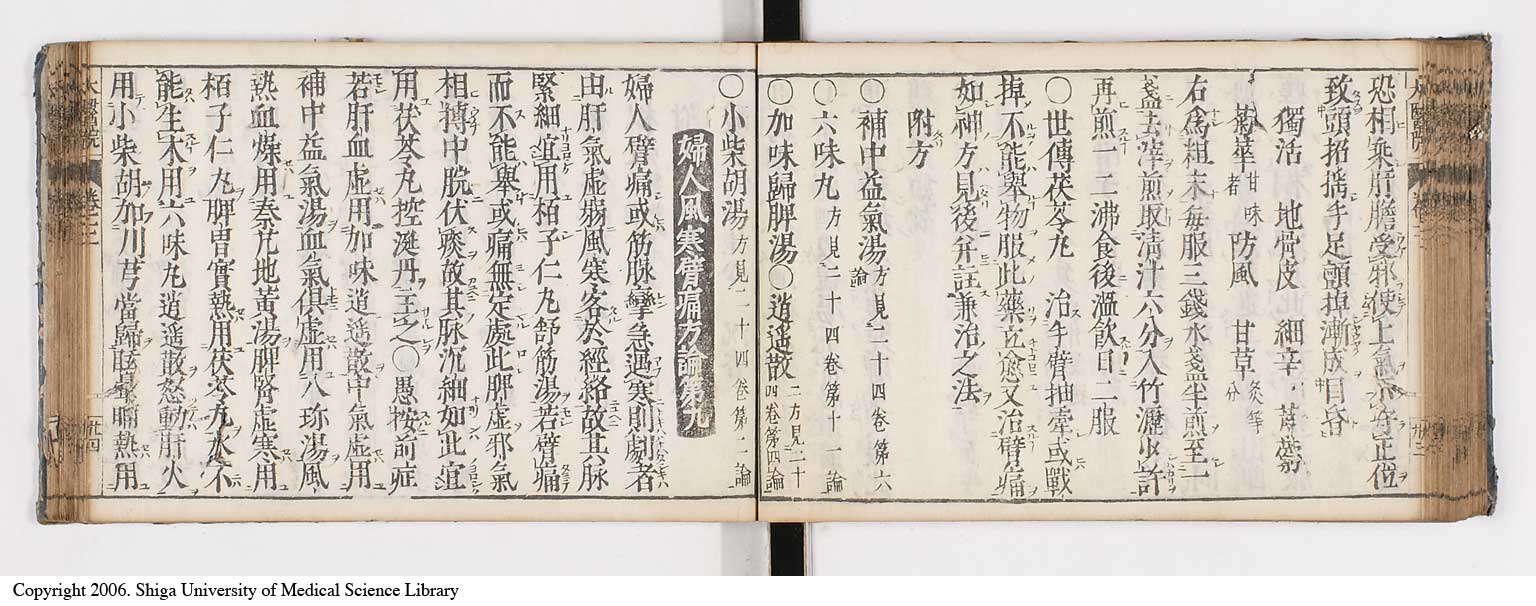 恐相乗肝膽受邪使上氣不守正位
致頭招揺手足顫掉漸成目昏
獨活 地骨皮 細辛 芎藭
菊華 甘味者 防風 甘草 炙等分
右為粗末毎服三錢水盞半煎至一
盞去滓煎取清汁六分入竹瀝少許
再煎一二沸食後温飲日二服
○世傳茯苓丸 治手臂抽牽或戰
掉不能舉物服此藥立愈又治臂痛
如神方見後并註兼治之法
附方
○補中益氣湯 方見二十四卷第六論
○六味丸 方見二十四卷第十一論
○加味歸脾湯○逍遥散 二方見二十四卷第四論
○小柴胡湯 方見二十四卷第二論
婦人風寒臂痛方論第九
婦人臂痛或筋脉攣急遇寒則劇者
由肝氣虚弱風寒客於經絡故其脉
緊細宜用栢子仁丸舒筋湯若臂痛
而不能舉或痛無定處此脾虚邪氣
相搏中脘伏痰故其脉沉細如此宜
用茯苓丸控涎丹主之○愚按前症
若肝血虚用加味逍遥散中氣虚用
補中益氣湯血氣俱虚用八珍湯風
熱血燥用秦艽地黄湯脾腎虚寒用
栢子仁丸脾胃實熱用茯苓丸水不
能生木用六味丸逍遥散怒動肝火
用小柴胡加川芎當歸眩暈晡熱用
大醫院 卷之三
Copyright 2006. Shiga University of Medical Science Library